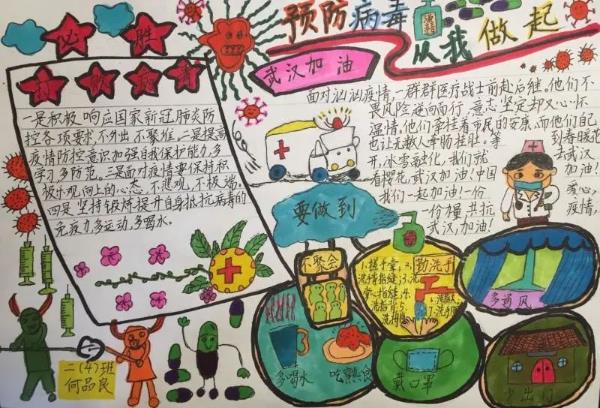 预防病毒
从我做起
必胜
武汉加油
一是积极响应国家新冠肺炎防
控各项要求,不外出、不聚堆,二是提高
疫情防控意识加强自我保护能力,多
学习,多防范。三是面对疫情要保持积
极乐观向上的心态,不悲观,不极端。
四是坚持锻炼提升自身抵抗病毒的
免疫力,多运动,多喝水。
面对汹汹疫情,一群群医疗战士前赴后继,他们不
畏风险逆向而行,意志坚定却又心怀
温情,他们牵挂着市民的安康,而他们自己
也让无数人牵肠挂肚。等到春暖花
开,冰雪融化,我们就去武汉
看樱花,武汉加油!中国加油!
我们一起加油!一份爱心,
一份力量共抗疫情,
武汉,加油!
要做到
不聚会
勤洗手
多喝水
吃熟食
戴口罩
多通风
少出门
二(4)班
何品良